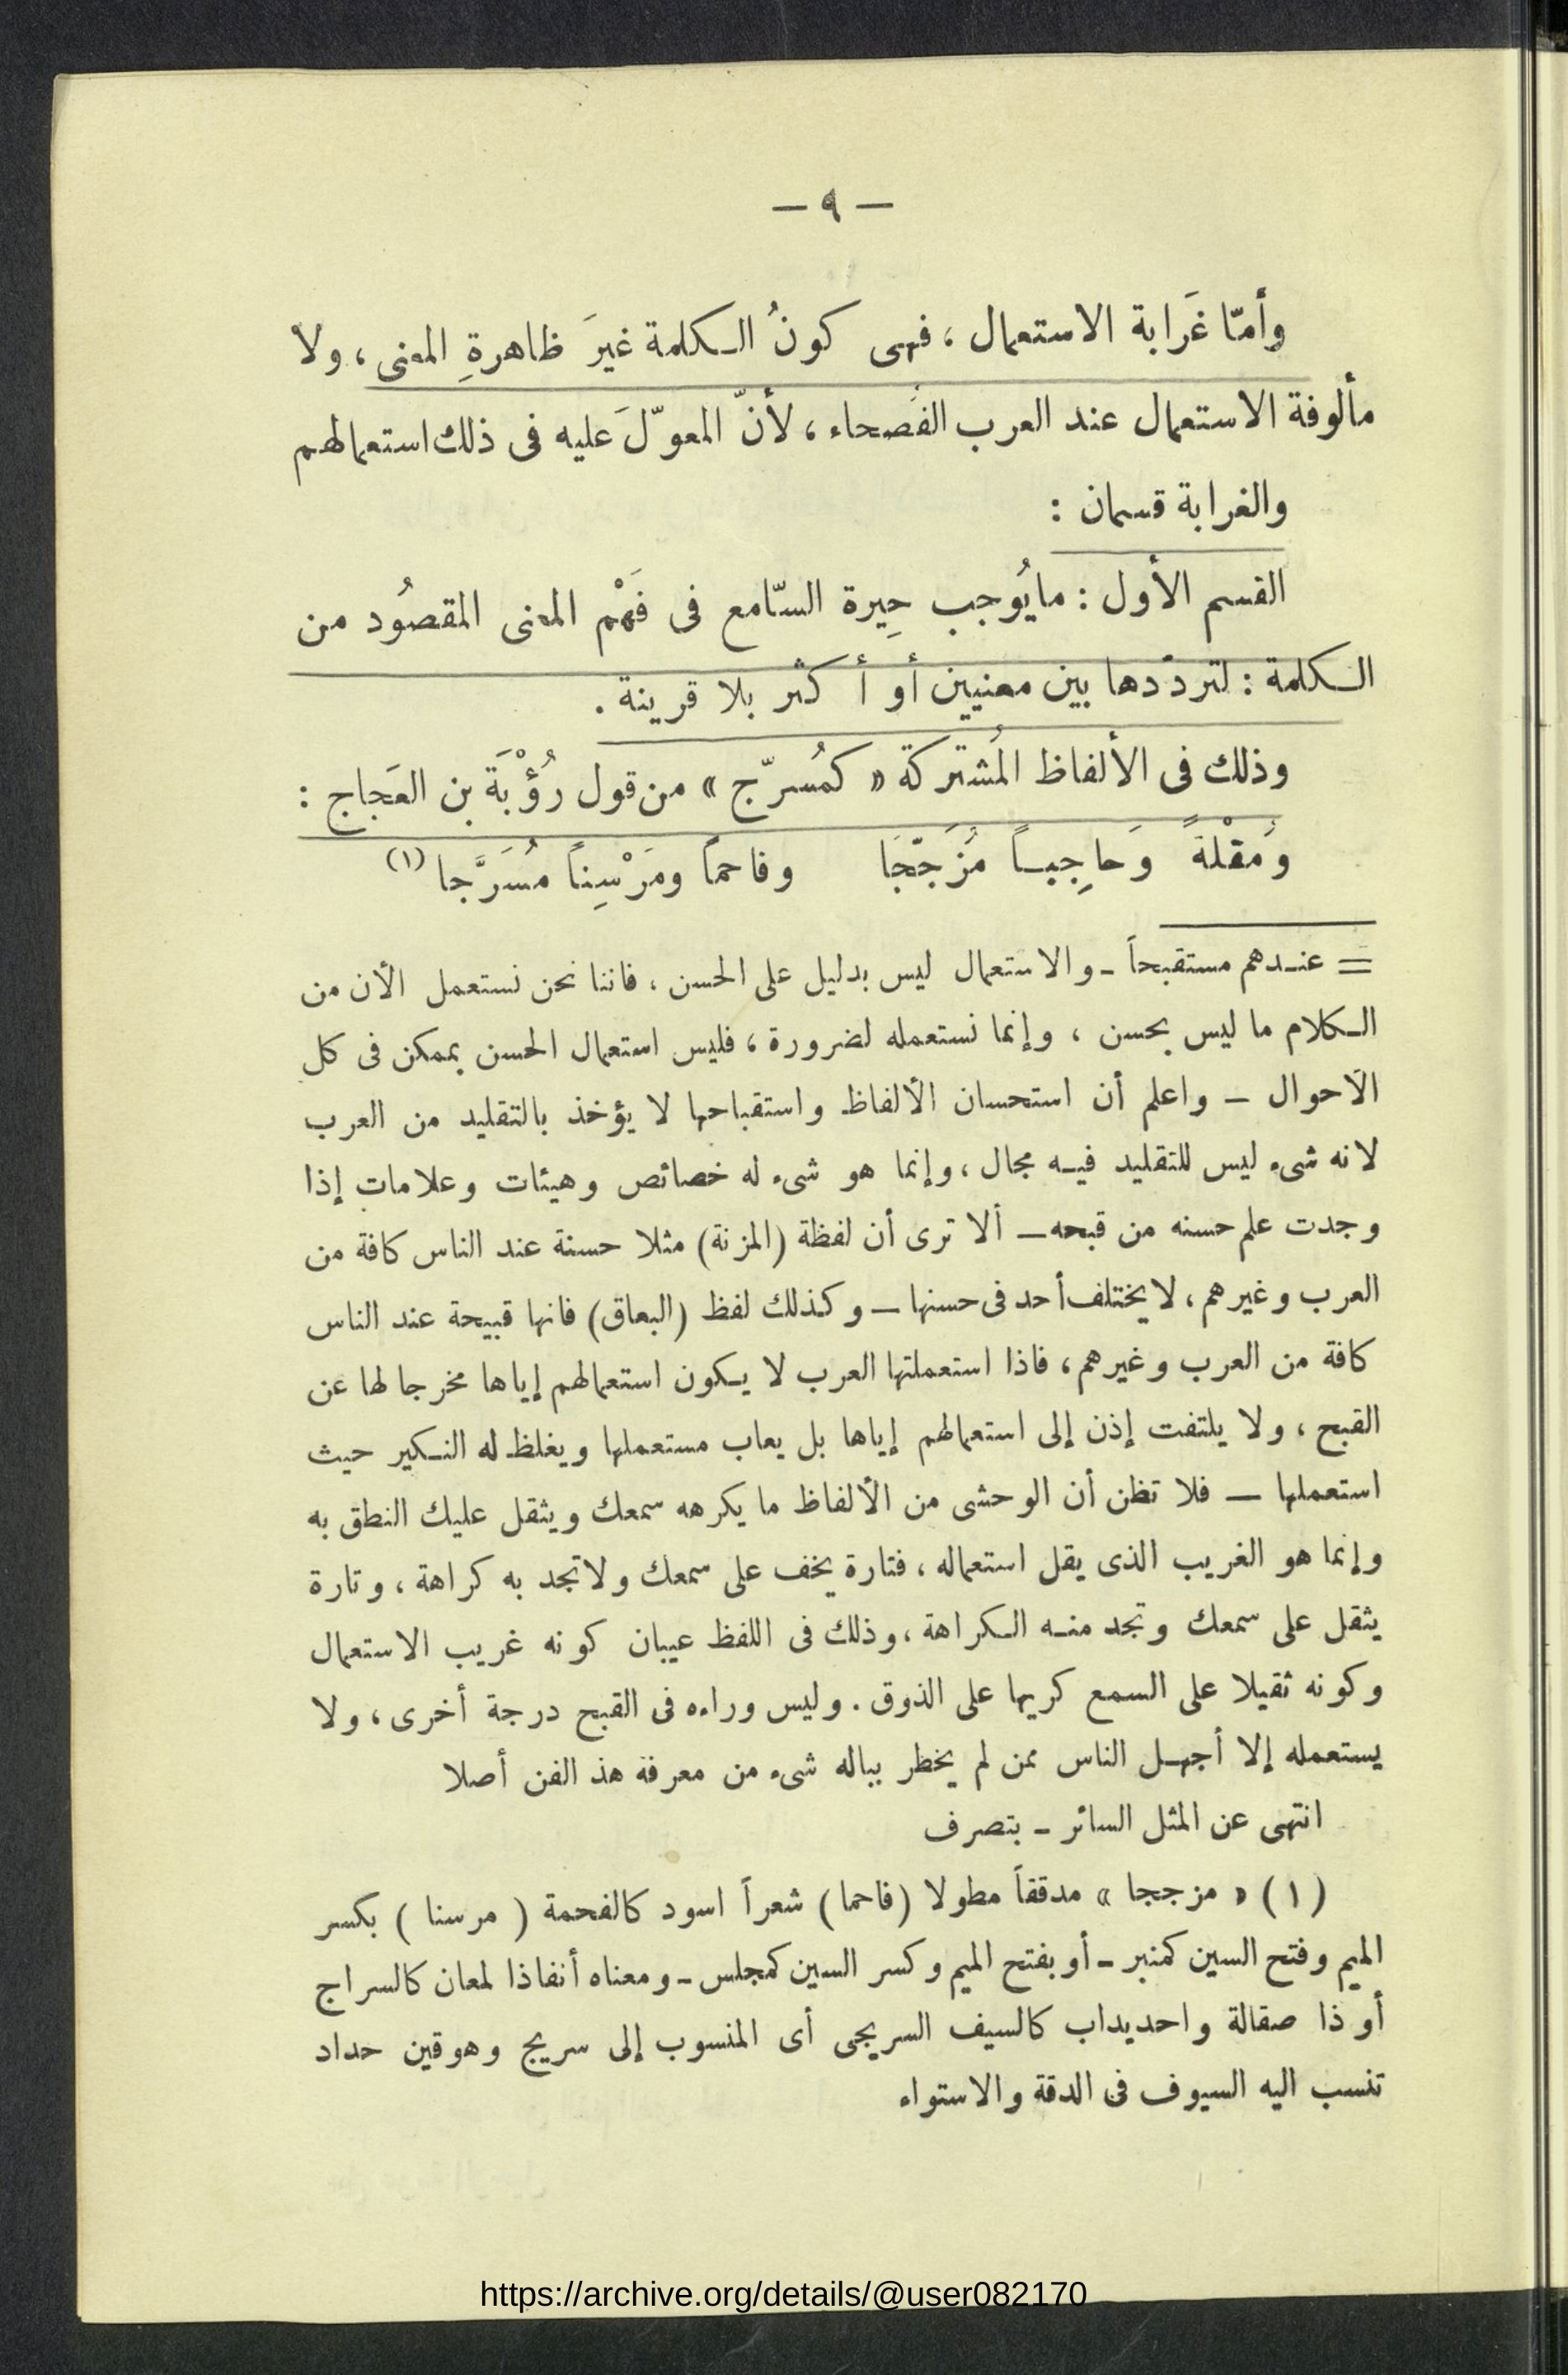 — ٩ —
وأمّا غَرابة الاستعمال ، فهى كونُ الـكلمة غيرَ ظاهرةِ المعنى ، ولا
مألوفة الاستعمال عند العرب الفُصحاء ، لأنّ المعوّلَ عليه فى ذلك استعمالهم
والغرابة قسمان :
القسم الأول : مايُوجب حِيرة السّامع فى فَهْم المعنى المقصُود من
الـكلمة : لتردّدها بين معنيين أو أكثر بلا قرينة .
وذلك فى الألفاظ المُشتركة « كمُسرّج » من قول رُؤْبَة بن العَجاج :
وَمُقْلةً وَحاجِبـاً مُزَجّجَا وفاحماً ومَرْسِناً مُسَرَّجا (١)
= عنـدهم مستقبحاً ـ والاستعمال ليس بدليل على الحسن ، فاننا نحن نستعمل الأن من
الـكلام ما ليس بحسن ، وإنما نستعمله لضرورة ، فليس استعمال الحسن بممكن فى كل
الاحوال — واعلم أن استحسان الألفاظ واستقباحها لا يؤخذ بالتقليد من العرب
لانه شىء ليس للتقليد فيـه مجال ، وإنما هو شىء له خصائص وهيئات وعلامات إذا
وجدت علم حسنه من قبحه — ألا ترى أن لفظة (المزنة) مثلا حسنة عند الناس كافة من
العرب وغيرهم ، لا يختلف أحد فى حسنها — وكذلك لفظ (البعاق) فانها قبيحة عند الناس
كافة من العرب وغيرهم ، فاذا استعملتها العرب لا يـكون استعمالهم إياها مخرجا لها عن
القبح ، ولا يلتفت إذن إلى استعمالهم إياها بل يعاب مستعملها ويغلظ له النـكير حيث
استعملها — فلا تظن أن الوحشى من الألفاظ ما يكرهه سمعك ويثقل عليك النطق به
وإنما هو الغريب الذى يقل استعماله ، فتارة يخف على سمعك ولا تجد به كراهة ، وتارة
يثقل على سمعك وتجد منـه الـكراهة ، وذلك فى اللفظ عيبان كونه غريب الاستعمال
وكونه ثقيلا على السمع كريها على الذوق . وليس وراءه فى القبح درجة أخرى ، ولا
يستعمله إلا أجهـل الناس ممن لم يخطر بباله شىء من معرفة هذ الفن أصلا
انتهى عن المثل السائر ـ بتصرف
(١) « مزججا » مدققاً مطولا (فاحما) شعراً اسود كالفحمة ( مرسنا ) بكسر
الميم وفتح السين كمنبر ـ أو بفتح الميم وكسر السين كمجلس ـ ومعناه أنفاذا لمعان كالسراج
أو ذا صقالة واحديداب كالسيف السريجى أى المنسوب إلى سريج وهوقين حداد
تنسب اليه السيوف فى الدقة والاستواء
https://archive.org/details/@user082170